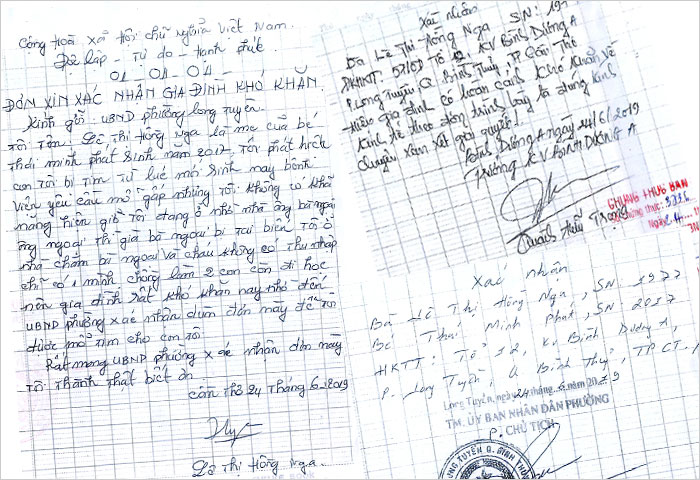 Cộng Hoà Xã Hội chữ nghĩa Việt Nam.
Độc lập - Tự do - Hạnh phúc
ĐƠN XIN XÁC NHẬN GIA ĐÌNH KHÓ KHĂN
Kính gửi: UBND phường long Tuyền
Tôi Tên: Lê Thị Hồng Nga là mẹ của bé
Thái minh phát Sinh năm 2017. Tôi phát hiện
con Tôi bị Tim Từ lúc mới Sinh nay bệnh
Viện yêu cầu mổ gấp nhưng tôi không có khả
năng hiện giờ Tôi đang ở nhờ nhà ông bà ngoại
ông ngoại Thì già bà ngoại bị Tai biến Tôi ở
nhà chăm bà ngoại Và cháu không có Thu nhập
chỉ có 1 mình chồng làm 2 con còn đi học
nên gia đình rất khó khăn nay nhờ đến
UBND phường xác nhận dùm đơn này để tôi
được mổ tim cho con tôi
Rất mong UBND phường xác nhận đơn này
Tôi Thành Thật biết ơn
cần Thơ 24 Tháng 6-2019
Lê Thị Hồng Nga.
Xác nhận
Bà Lê Thị Hồng Nga SN: 197
ĐKHTT: Tổ 12, KV Bình Dương A
P Long Tuyền Q. Bình Thuỷ, TP Cần Thơ
Hiện gia đình có hoàn cảnh khó khăn về
kinh tế theo đơn trình bày là đúng kính
chuyển xem xét giải quyết.
Bình Dương A ngày 24/6/2019
Trưởng KV BÌNH DƯƠNG A
CHỨNG THỰC BẢN
Quách Hiếu Trung
Xác nhận
Bà Lê Thị Hồng Nga, SN 1977
Bé Thái Minh Phát, SN 2017
HKTT: Tổ 12, k. Bình Dương A,
P. Long Tuyền, Q Bình Thuỷ, TPCT
Long Tuyền, ngày 24 tháng 6 năm 2019
TM. ỦY BAN NHÂN DÂN PHƯỜNG
P. CHỦ TỊCH